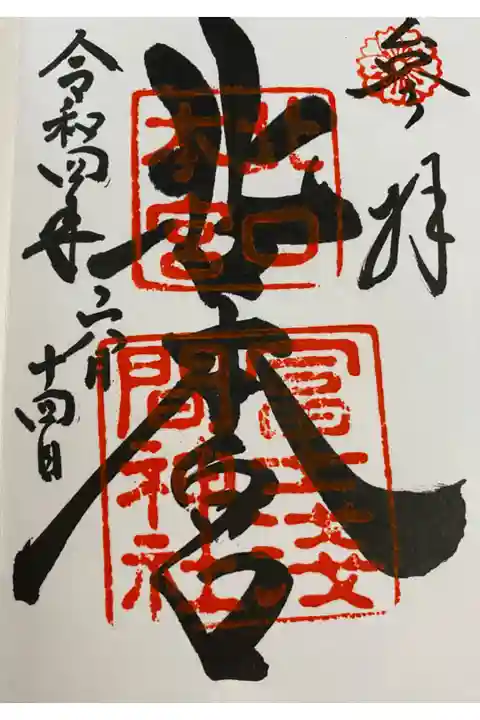 参拝
北口本宮
北口
本宮
冨士浅
間神社
令和四年
六月
十四日